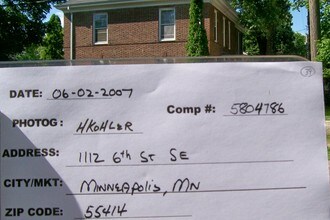 DATE: 06-02-2007
Comp #: 5804786
PHOTOG: HKOHLER
ADDRESS: 1112 6th ST SE
CITY/MKT: MINNEAPOLIS, MN
ZIP CODE: 55414